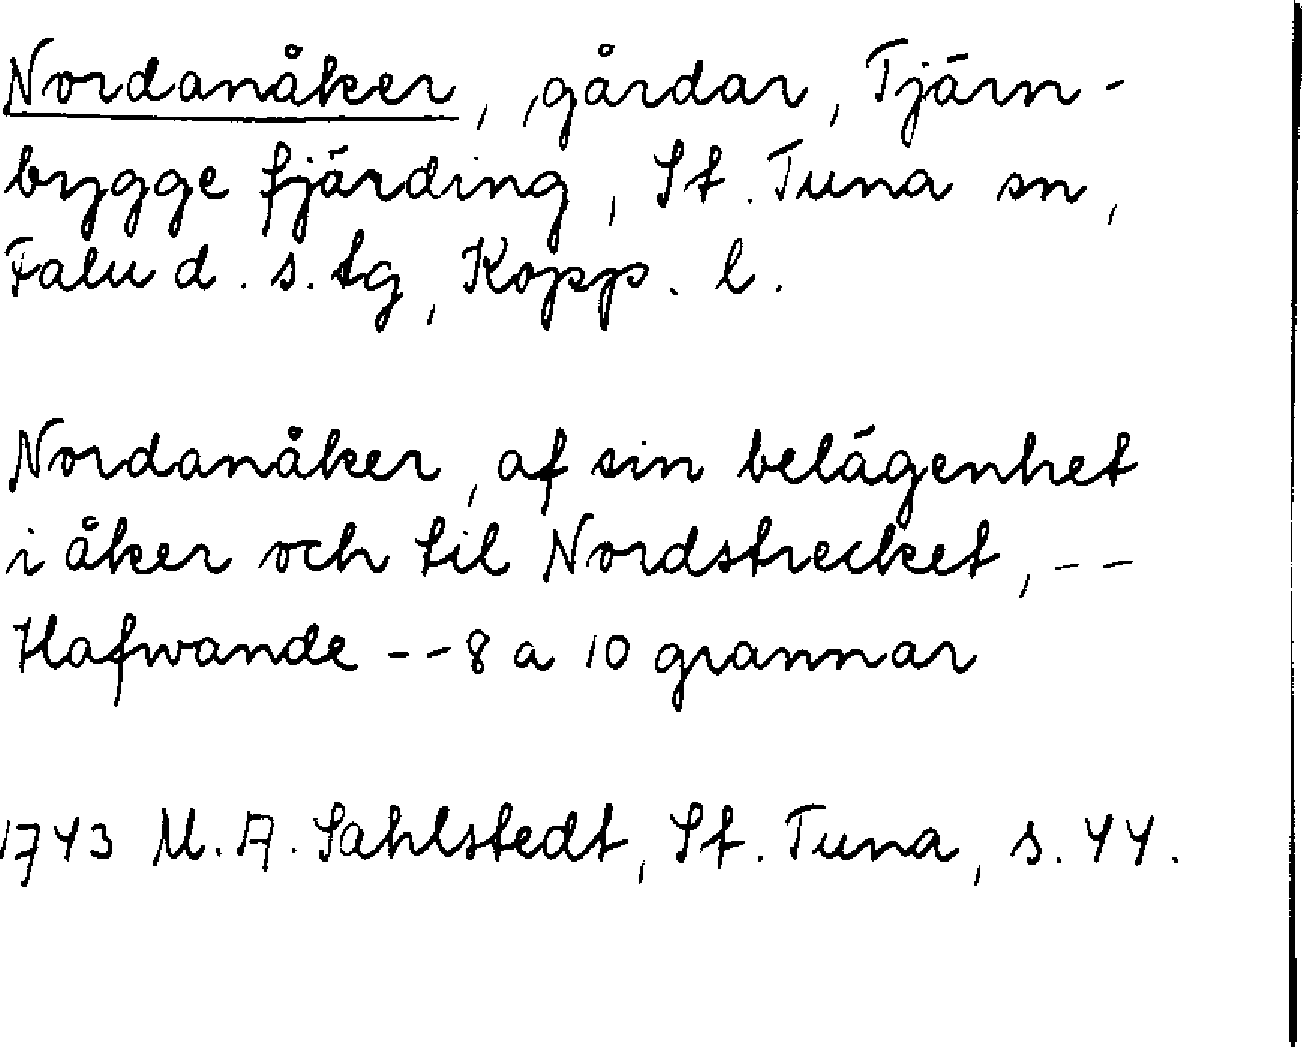 Nordanåker, gårdar, Tjärn-
bygge fjärding, St. Tuna sn,
Falu d. s. tg, Kopp. l.
Nordanåker, af sin belägenhet
i åker och til Nordstrecket, --
Hafwande -- 8 a 10 grannar
1743 M. A. Sahlstedt, St. Tuna, s. 44.